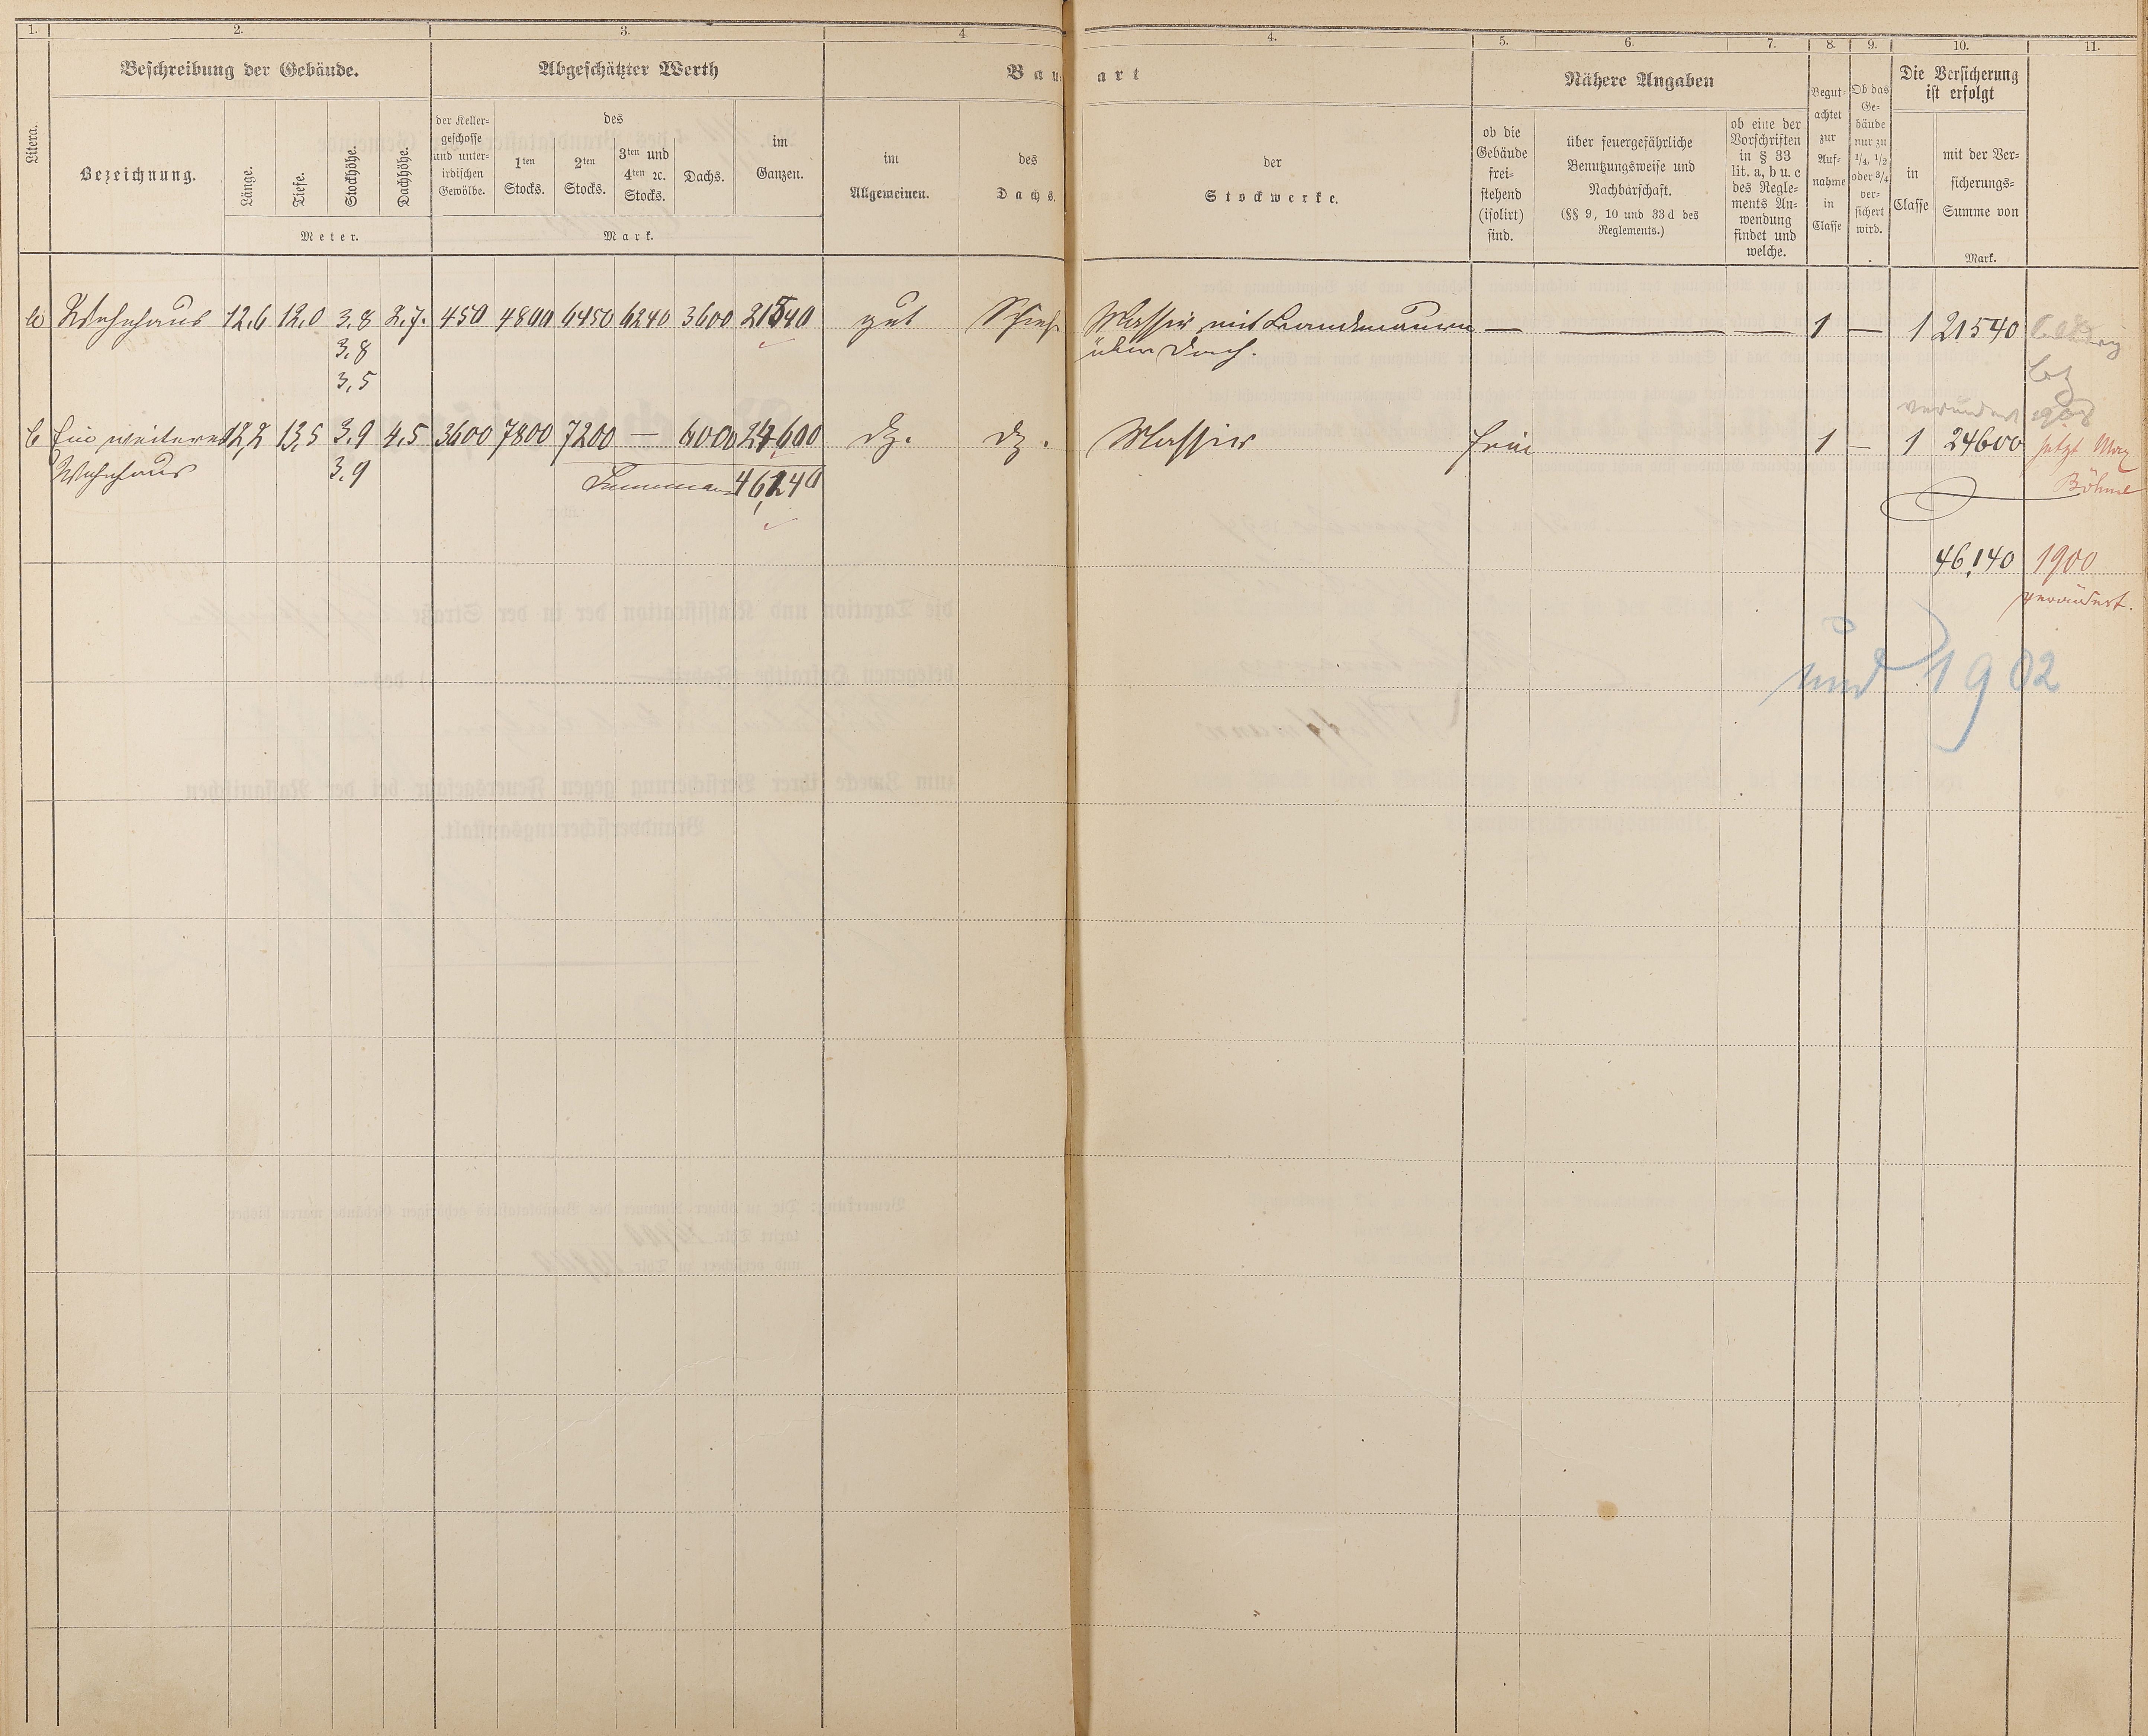 1. 2. 3. 4 4. 5. 6. 7. 8. 9. 10. 11.
Litera.
Beschreibung der Gebäude.
Bezeichnung.
Länge.
Tiefe.
Stockhöhe.
Dachhöhe.
Meter.
Abgeschätzter Werth
der Keller-
geschosse
und unter-
irdischen
Gewölbe.
des
1ten
Stocks.
2ten
Stocks.
3ten und
4ten ꝛc.
Stocks.
Dachs.
im
Ganzen.
Mark.
Bau art
im
Allgemeinen.
des
Dachs.
der
Stockwerke.
Nähere Angaben
ob die
Gebäude
frei-
stehend
(isolirt)
sind.
über feuergefährliche
Benutzungsweise und
Nachbarschaft.
(§§ 9, 10 und 33 d des
Reglements.)
ob eine der
Vorschriften
in § 33
lit. a, b u. c
des Regle-
ments An-
wendung
findet und
welche.
Begut-
achtet
zur
Auf-
nahme
in
Classe
Ob das
Ge-
bäude
nur zu
1/4, 1/2
oder 3/4
ver-
sichert
wird.
Die Versicherung
ist erfolgt
in
Classe
mit der Ver-
sicherungs-
Summe von
Mark.
a Wohnhaus 12,6 12,0 3,8 2,7. 450 4800 6450 6240 3600 21540 gut Schief. Massiv mit Brandmauern — — — 1 — 1 21540
3,8 über Dach.
3,5
verändert
b Ein weiteres 12,2 13,5 3,9 4,5 3600 7800 7200 — 6000 24,600 dg. dg. Massiv frei 1 — 1 24600 jetzt Max
Wohnhaus 3,9 Summa 46,140 Böhme
46,140 1900
verändert.
und 1902